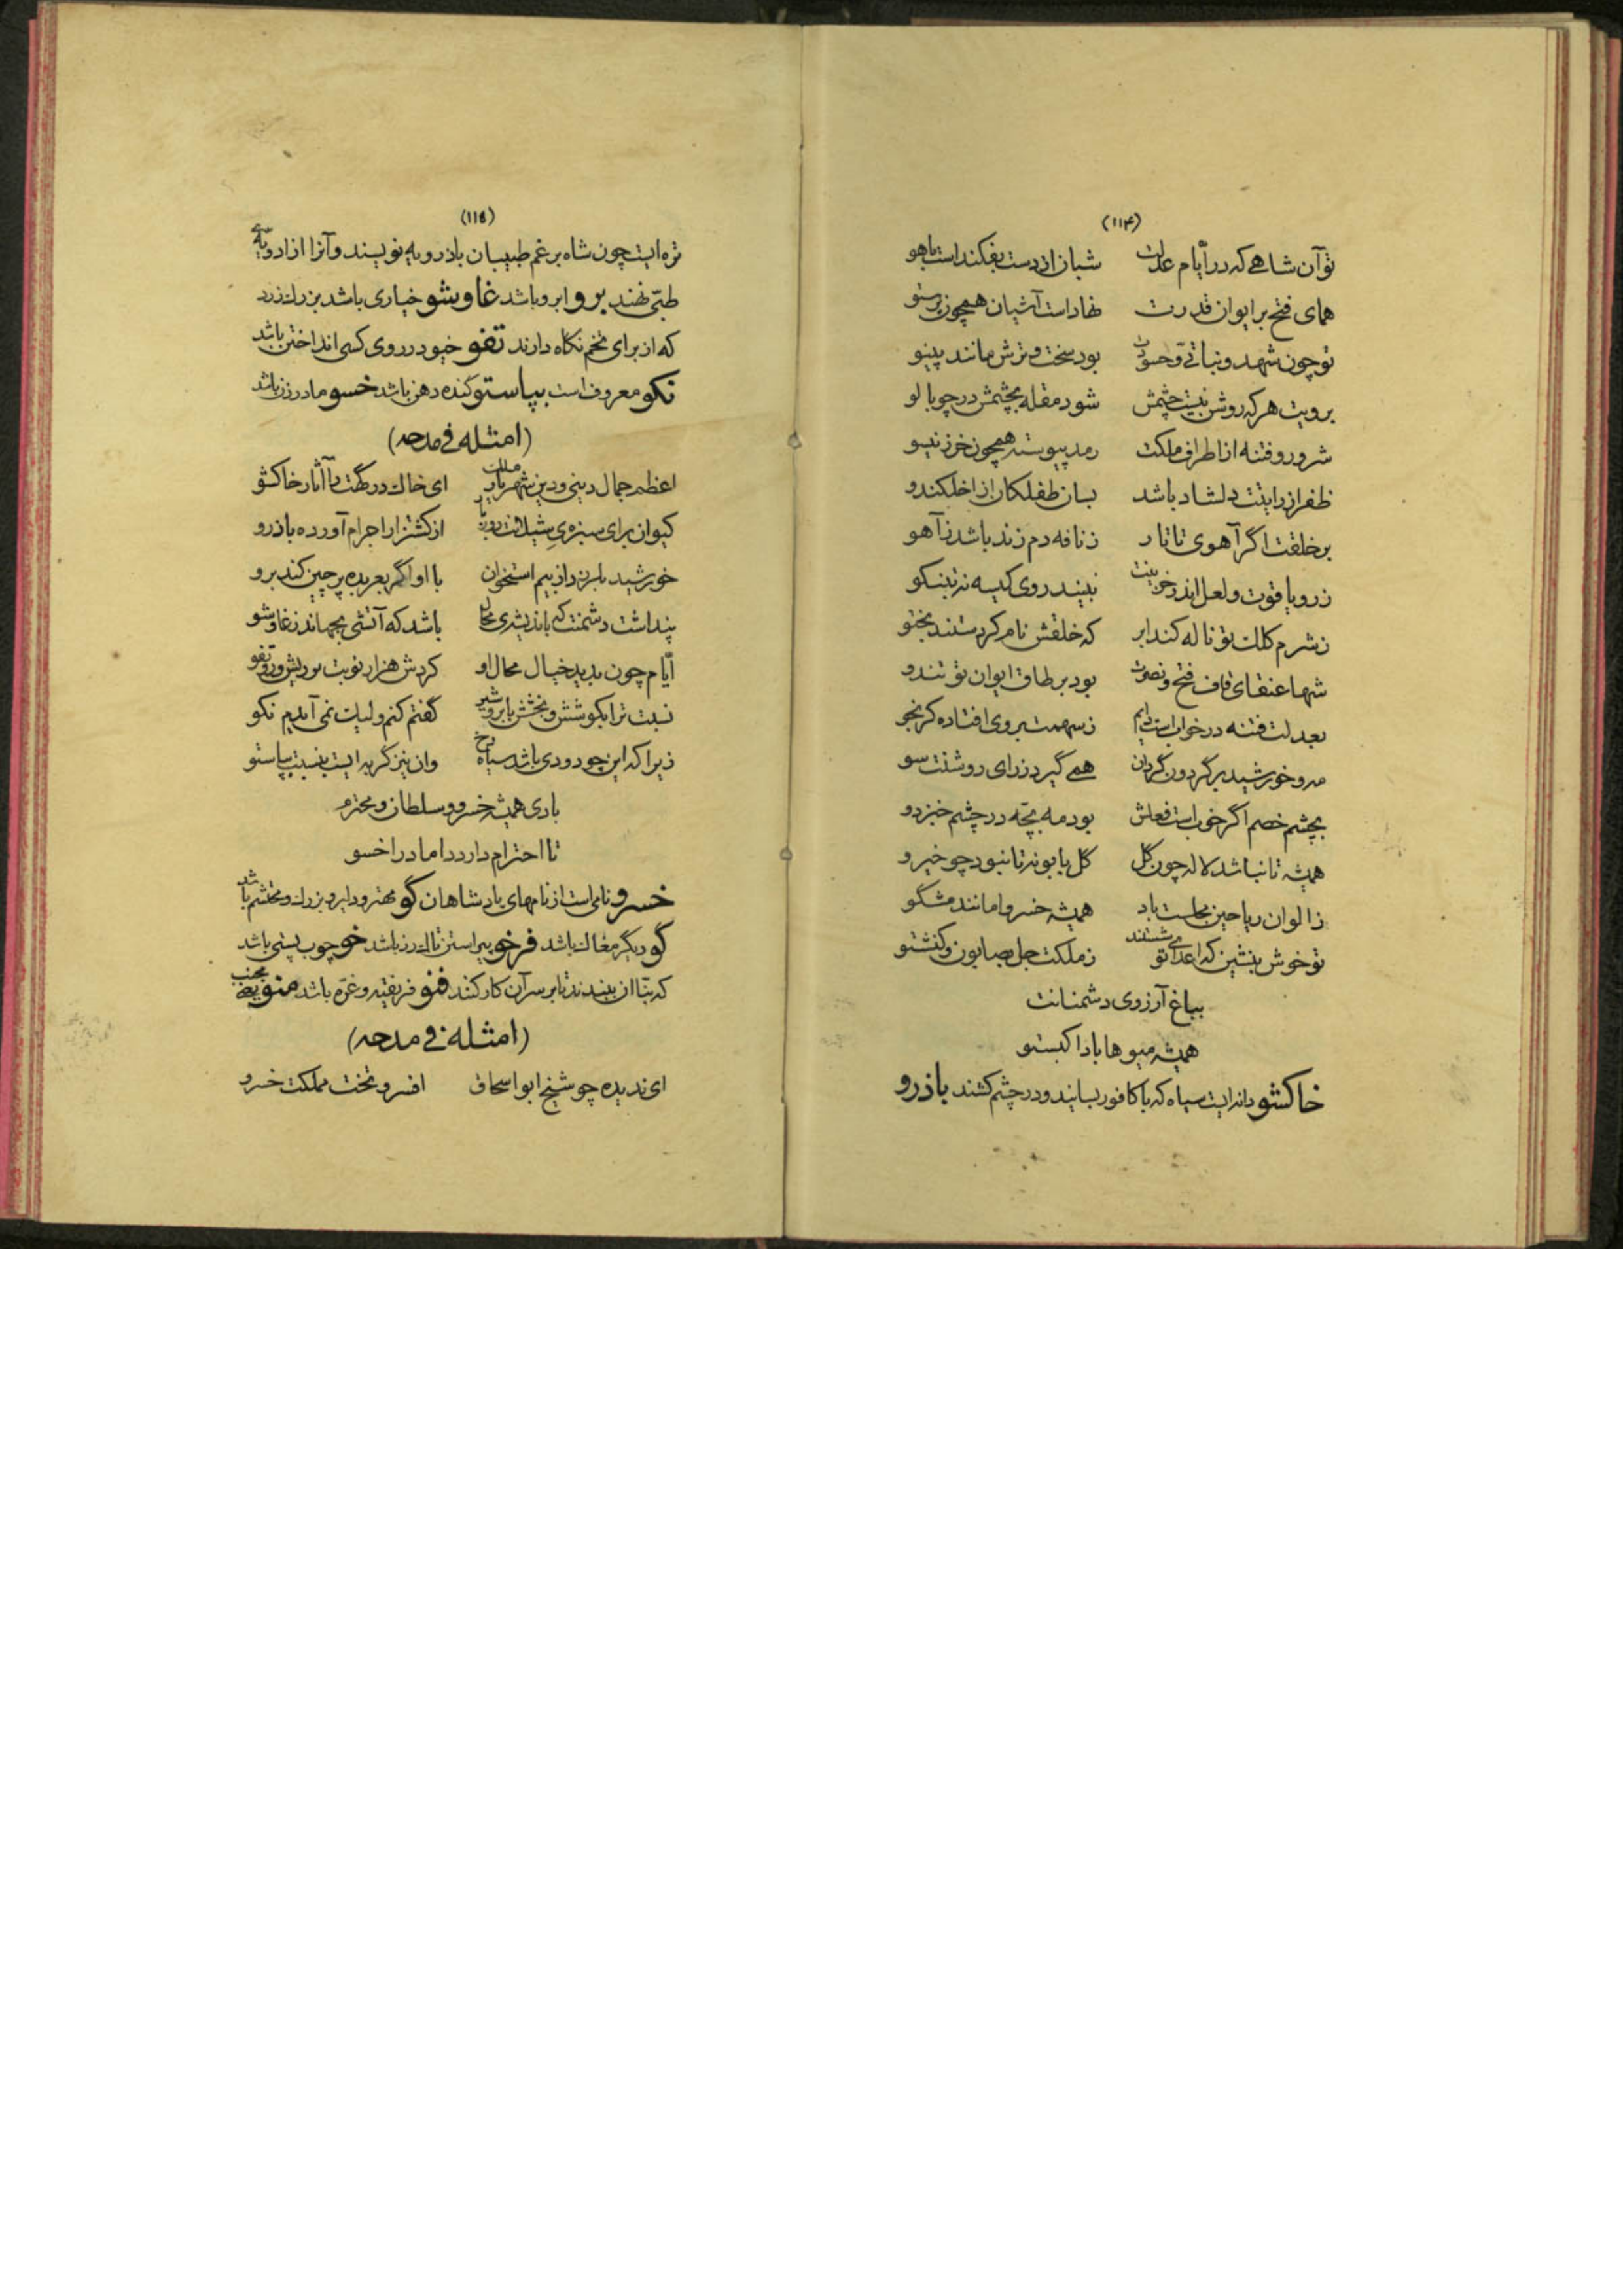 (۱۱۴)
تو آن شاهے که در ایّام عدلت شبان از دست بفکنداست باهو
همای فتح بر ایوان قدرت نهاداست آشیان همچون پرستو
تو چون شهد و نباتی و حسودت بود سخت و ترش مانند پینو
برویت هر که روشن نیست چشمش شود مقله بچشمش در چو بالو
شر و رو فتنه از اطراف ملکت رمد پیوسته همچون خر ز نیسو
ظفر از رایتت دلشاد باشد بسان طفلکان از اخلکندو
بر خلقت اگر آهوی تاتار ز نافه دم زند باشد ز آهو
زر و یاقوت و لعل اندر خزینت نبیند روی کیسه نه تبنکو
ز شرم کلک تو ناله کند ابر که خلقش نام کردستند بختو
شها عنقای قاف فتح و نصرت بود بر طاق ایوان تو تندو
بعدلت فتنه در خواب است دایم ز سهمت بروی افتاده کرنجو
مه و خورشید بر گردون گردان همے گیرد ز رای روشنت سو
بچشم خصم اگر خوب است فعلش بود مه بچّه در چشم خبزدو
همیشه تا نباشد لاله چون گل گل بابونه تا نبود چو خیرو
ز الوان ریاحین مجلست باد همیشه خسروا مانند مشگو
تو خوش بنشین که اعدای تو شستند ز ملکت جل بصابون و کنشتو
بباغ آرزوی دشمنانت
همیشه میوها بادا کبستو
خاکشو دانه ایست سیاه که با کافور بسایند و در چشم کشند باذرو
(۱۱۵)
تره ایست چون شاه برغم طبیبان باذرویه نویسند و آنرا از ادویهٔ
طبّی نهند برو ابرو باشد غاوشو خیاری باشد بزرك زرد
که از برای تخم نگاه دارند تفو خیو در روی کسی انداختن باشد
نکو معروف است بپاستو گنده دهن باشد خسو مادر زن باشد
(امثله فی مدحه)
اعظم جمال دینی و دین شهریار ملك ای خاك درگهت بآثار خاکشو
کیوان برای سبزهٔ شیلانت از کشتزار اجرام آورده باذرو
خورشید بلرزد از بیم استخوان با او اگر بعربده پرچین کند برو
پنداشت دشمنت که باندیشهٔ محال باشد که آتشی بجهاند ز غاوشو
ایّام چون بدید خیال محال او کردش هزار نوبت بر ریش و رو تفو
نسبت ترا بکوشش و بخشش بابر و شیر گفتم کنم ولیك نمی آیدم نکو
زیرا که این چو دودی باشد سیاه رخ وان نیز گربه ایست بنسبت بپاستو
بادی همیشه خسرو و سلطان و محترم
تا احترام دارد داماد را خسو
خسرو نامی است از نامهای پادشاهان گو مهتر و دلیر و بزرك و محتشم باشد
گو دیگر مغاك باشد فرخو پیراستن تاك رز باشد خو چوب بستی باشد
که بنّا آن ببندند تا بر سر آن کار کنند فنو فریفته و غرّه باشد منو
(امثله فی مدحه)
ای ندیده چو شیخ ابو اسحاق افسر و تخت مملکت خسرو